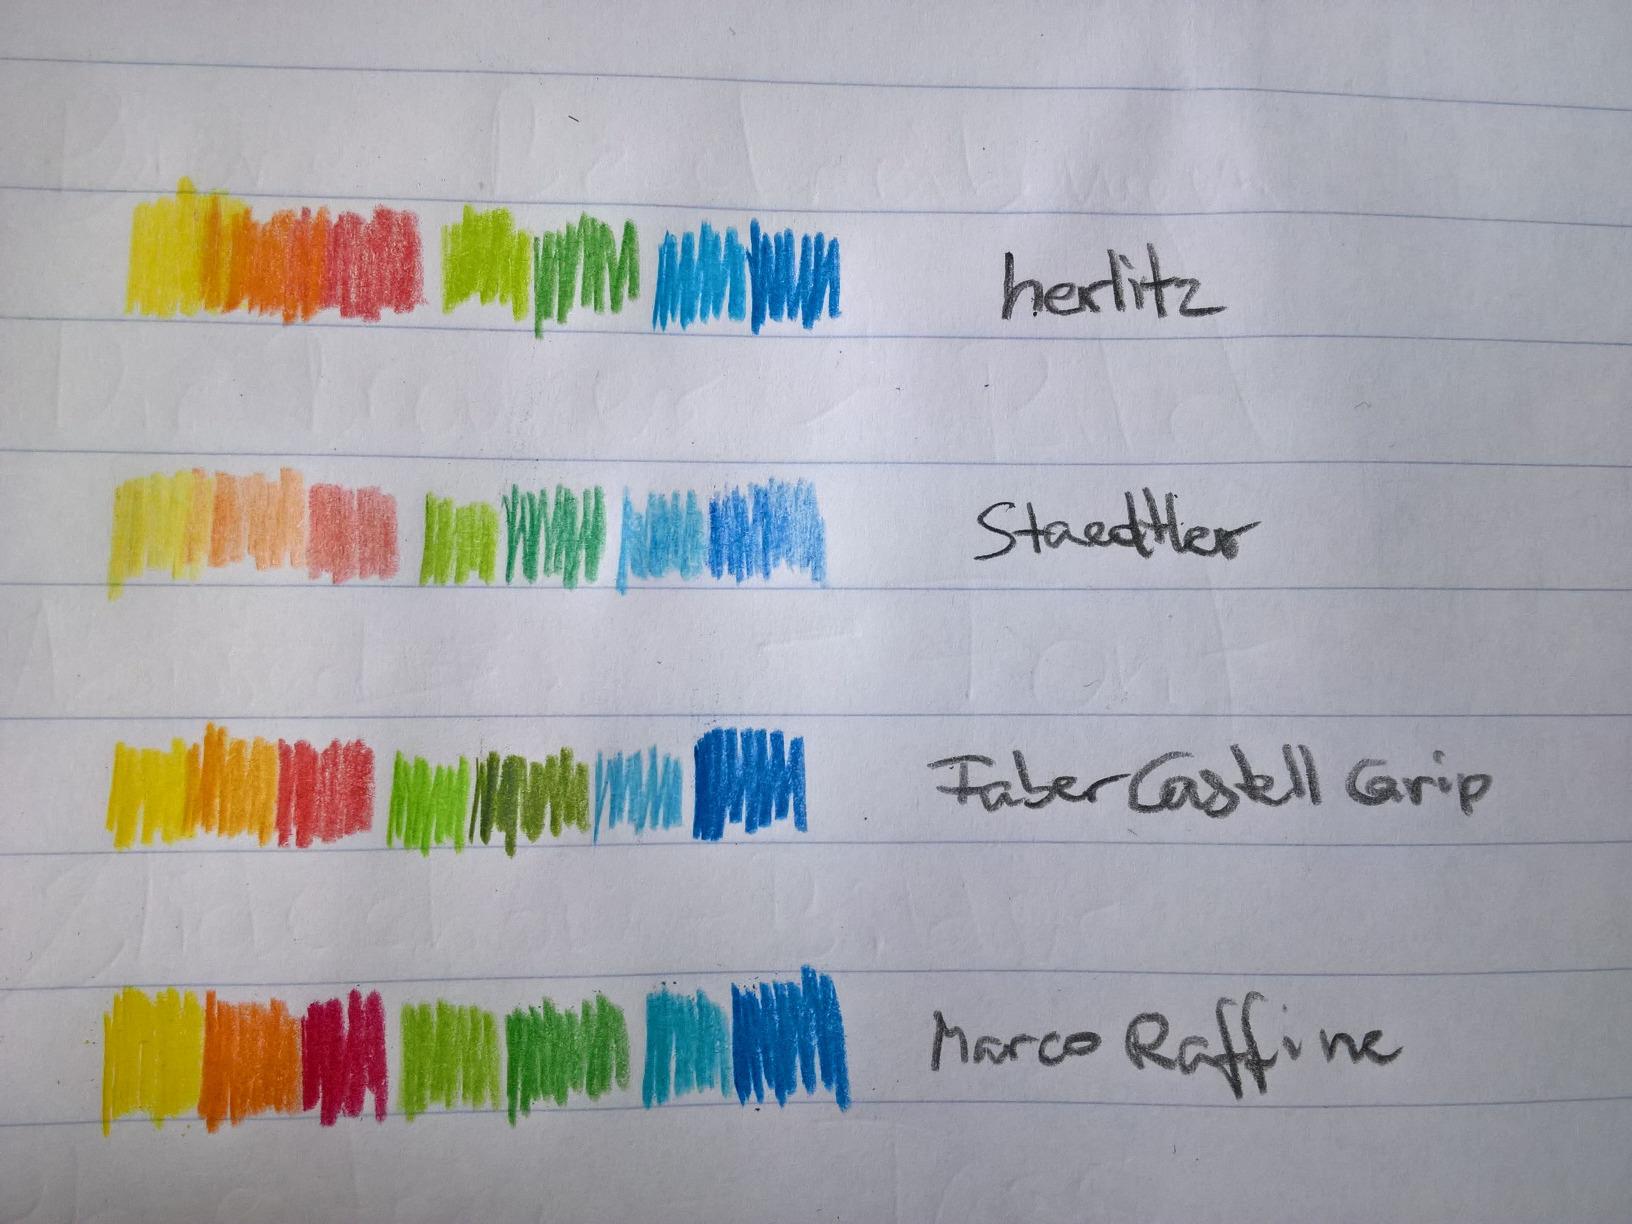 herlitz
Staedtler
Faber Castell Grip
Marco Raffine